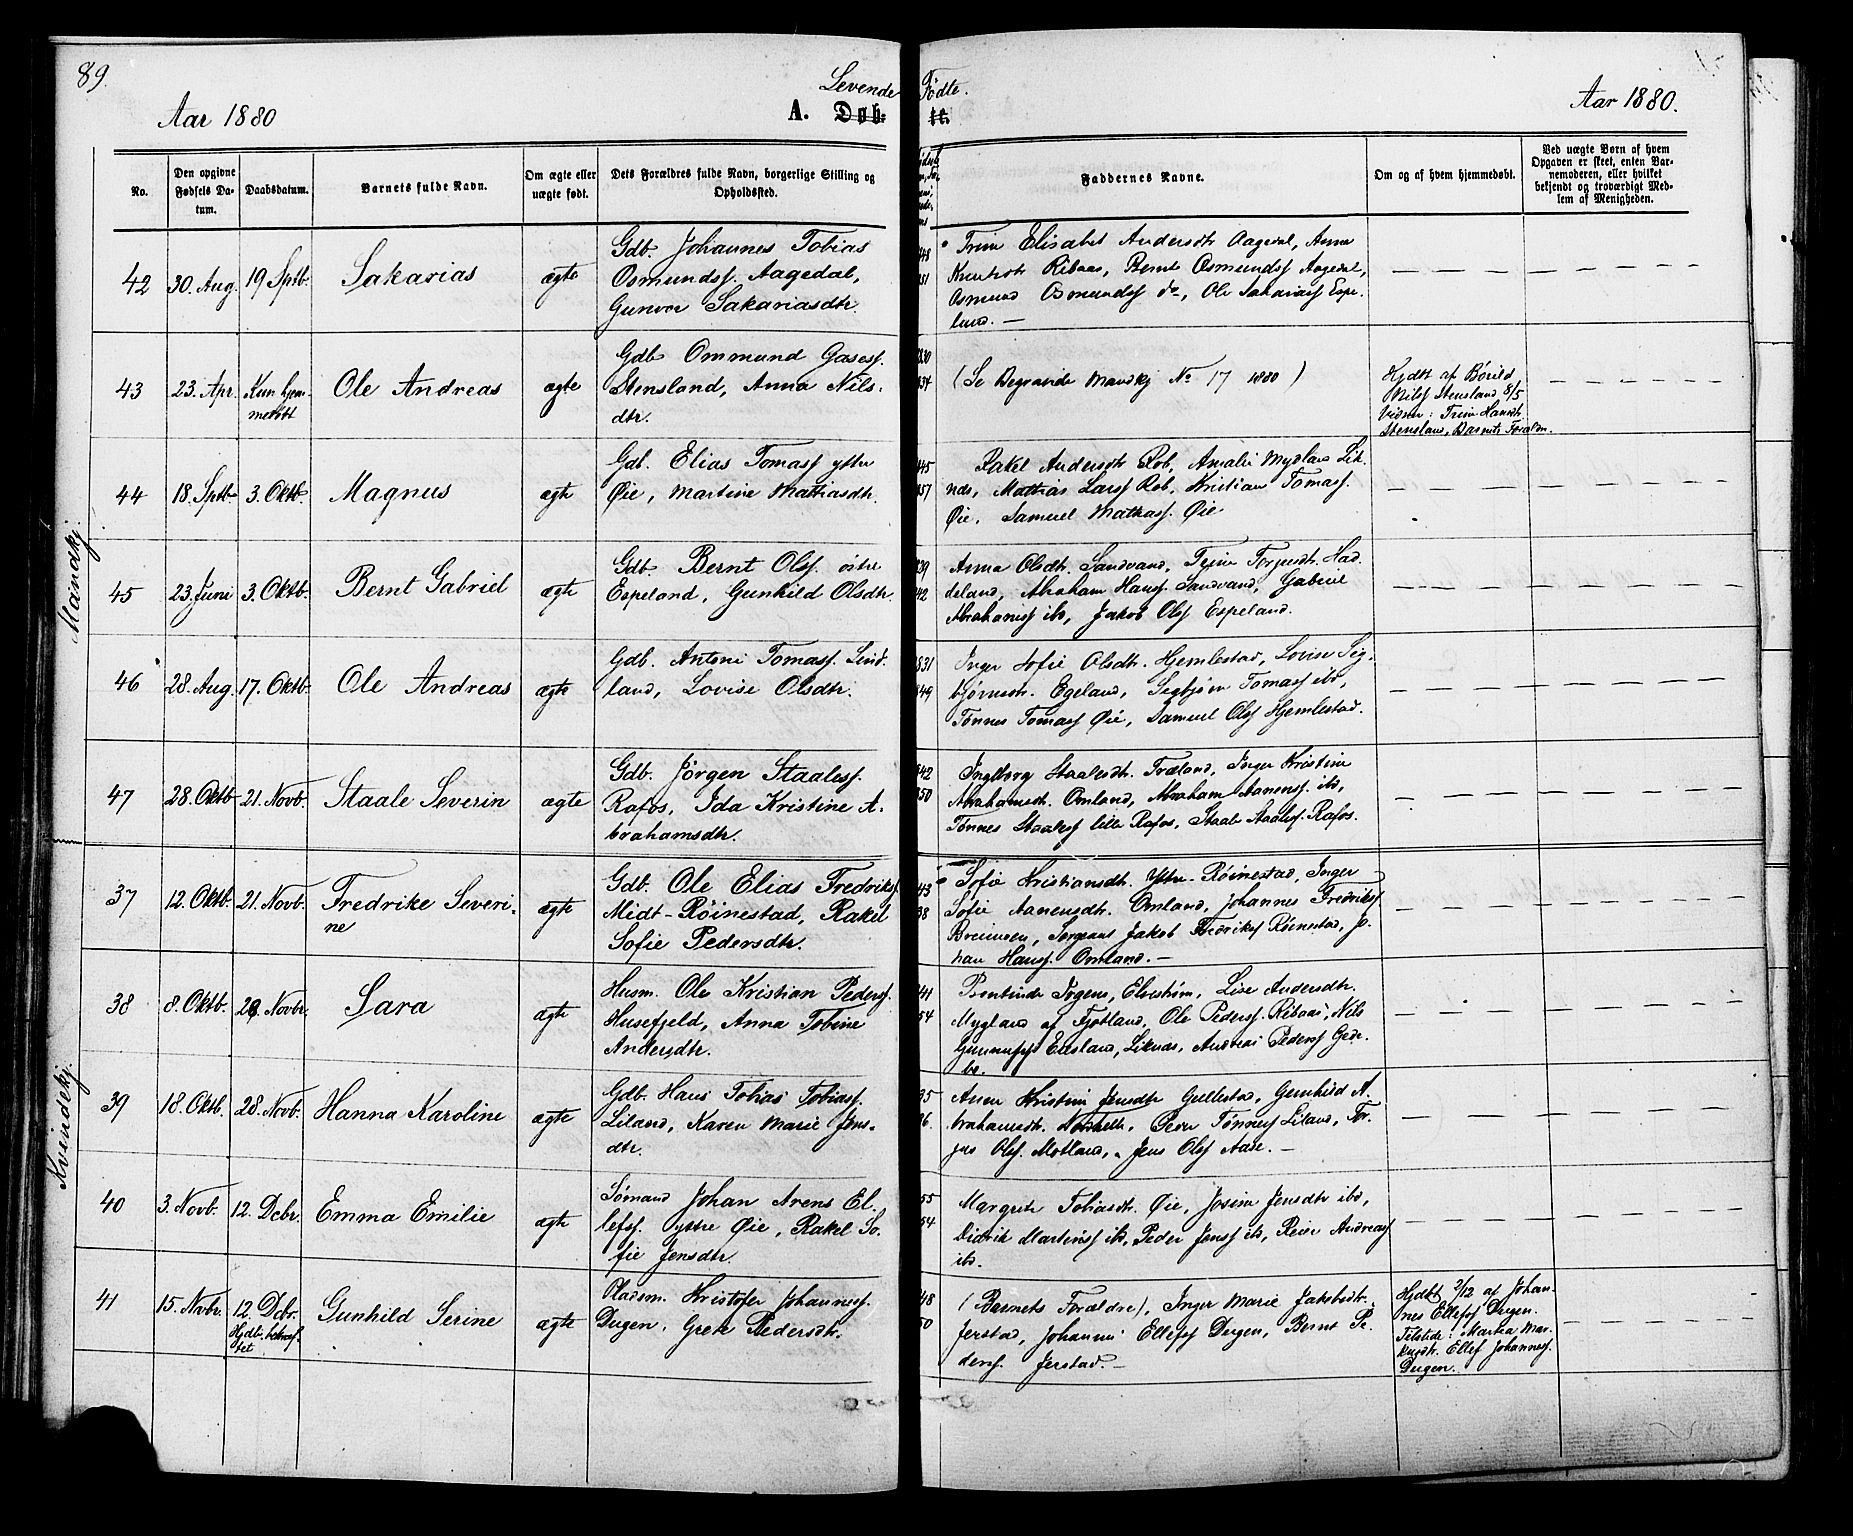 89.
Levende Födte.
Aar 1880
A. Døb- te.
Aar 1880.
No.
Den opgivne Fødsels Da-tum.
Daabsdatum.
Barnets fulde Navn.
Om ægte eller uægte født.
Dets Forældres fulde Navn, borgerlige Stilling og Opholdssted.
Faddernes Navne.
Om og af hvem hjemmedøbt.
Ved uægte Børn af hvem
Opgaven er skeet, enten Bar-
nemoderen, eller hvilket
bekjendt og troværdigt Med-
lem af Menigheden.
Mandkj.
42 30. Aug. 19 Sptb. Sakarias ægte
Gdb. Johannes Tobias
Osmundsf. Aagedal,
Gunvor Sakariasdtr.
48
51
Trine Elisabet Andersdtr Aagedal, Anna
Knutsdtr Ribaas, Bernt Osmundsf Aagedal,
Osmund Osmundsf do, Ole Sakariasf Espe-
land. —
43 23. Apr. Kun hjem-
medöbt
Ole Andreas ægte
Gdb Ommund Gasesf.
Stensland, Anna Nils-
dtr.
1830
34
(Se Begravede Mandkj No 17 1880)
Hjdt af Börild
Nilsf Stensland 8/5
Vidner: Trine Hansdtr
Stensland, Barnets Forældre.
44 18. Sptb 3. Oktb. Magnus ægte
Gdb. Elias Tomasf ytter
Øie, Martine Mattiasdtr.
45
57
Rakel Andersdtr Rob, Amalie Mydland Lik-
nes, Mathias Larsf Rob, Kristian Tomasf.
Øie, Samuel Mathiasf. Øie
45 23. Juni 3. Oktb. Bernt Gabriel ægte
Gdb. Bernt Olsf. östre
Espeland, Gunhild Olsdtr.
39
42
Anna Olsdtr. Sandvand, Trine Torgersdtr Had-
deland, Abraham Hansf. Sandvand, Gabriel
Abrahamsf ibd, Jakob Olsf Espeland.
46 28. Aug. 17. Oktb. Ole Andreas ægte
Gdb. Antoni Tomasf. Lind-
land, Lovise Olsdtr.
831
49
Inger Sofie Olsdtr. Hjemlestad, Lovise Sig-
björnsdtr. Egeland, Sigbjörn Tomasf ibd,
Tönnes Tomasf Øie, Samuel Olsf Hjemlestad.
47 28. Oktb 21. Novb. Staale Severin ægte
Gdb. Jörgen Staalesf.
Rafos, Ida Kristine A-
brahamsdtr.
42
50
Ingeborg Staalesdtr. Træland, Inger Kristine
Abrahamsdtr. Omland, Abraham Aanensf. ibd,
Tönnes Staalesf lille Rafos, Staale Staalesf. Rafos.
Kvindekj.
37 12. Oktb. 21. Novb. Fredrike Severi-
ne
ægte
Gdb. Ole Elias Fredriksf.
Midt-Röinestad, Rakel
Sofie Pedersdtr.
43
38
Sofie Kristiansdtr. Ytre-Röinestad, Inger
Sofie Aanensdtr. Omland, Johannes Fredriksf
Sergeant Jakob Fredriksf Röinestad, Jo-
han Hansf. Omland. —
38 8. Oktb. 28 Novbr. Sara ægte
Husm. Ole Kristian Pedersf.
Husefjeld, Anna Tobine
Andersdtr.
41
54
Elvestrøm, Lise Andersdtr.
Mygland af Fjotland, Ole Pedersf. Ribaas, Nils
Liknes, Andreas Pedersf Gede-
bo.
39 18. Oktb. 28. Novb. Hanna Karoline ægte
Gdb. Hans Tobias Tobiasf.
Liland, Karen Marie Jens-
dtr.
35
36.
Anne Kristine Jensdtr Gullestad, Gunhild A-
brahamsdtr. Peder Tönnesf Liland, Tor-
jus Olsf. Motland, Jens Olsf Aase. —
40 3. Novb. 12. Dcbr. Emma Emilie ægte
Sømand Johan Arens El-
lefsf. yttre Øie, Rakel So-
fie Jensdtr.
55
54
Margrete Tobiasdtr. Øie, Josine Jensdtr ibd,
Didrik Martinsf ibd, Peder Jensf ibd, Reier Andreasf
ibd.
41 15. Novbr. 12. Dcbr.
Hjdt. bekræf-
tet
Gunhild Serine ægte
Pladsm. Kristofer Johannesf.
Dugen, Grete Pedersdtr.
48
50
(Barnets Forældre), Inger Marie Jakobsdtr.
Jerstad, Johannes Ellefsf Dugen, Bernt Pe-
dersf. Jerstad. —
Hjdbt 2/12 af Johan-
nes Ellefsf Dugen.
Tilstede: Martea Mar-
kusdtr. Ellef Johannesf.
Dugen.